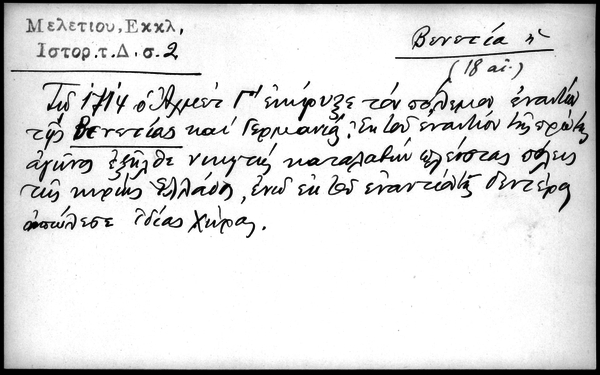 Μελετίου, Εκκλ,
Ιστορ. τ. Δ. σ. 2
Βενετία ἡ
(18 αἰ.)
Τῷ 1714 ὁ Ἀχμέτ Γ' ἐκήρυξε τόν πόλεμον ἐναντίον
τῆς Βενετίας καί Γερμανίας. Ἐκ τοῦ ἐναντίον τῆς πρώτης
ἀγῶνος ἐξῆλθε νικητής καταλαβών πλείστας πόλεις
τῆς κυρίως Ἑλλάδος, ἐνῶ ἐκ τοῦ ἐναντίον τῆς δευτέρας
ἀπώλεσε ἰδίας χώρας.